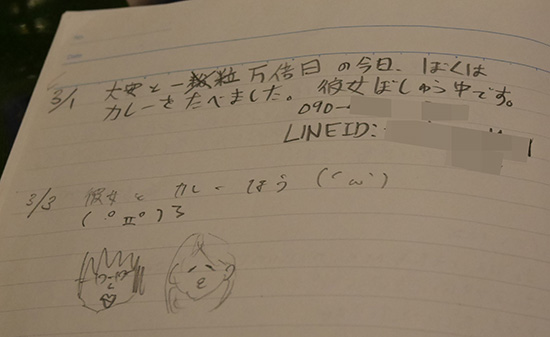 No.
Date
3/1 大安と一粒万倍日の今日、ぼくは
カレーをたべました。彼女ぼしゅう中です。
090-
LINEID:
3/3 彼女と カレー ほう (´ω`)
( ゚ ㅍ ゚ ) 3